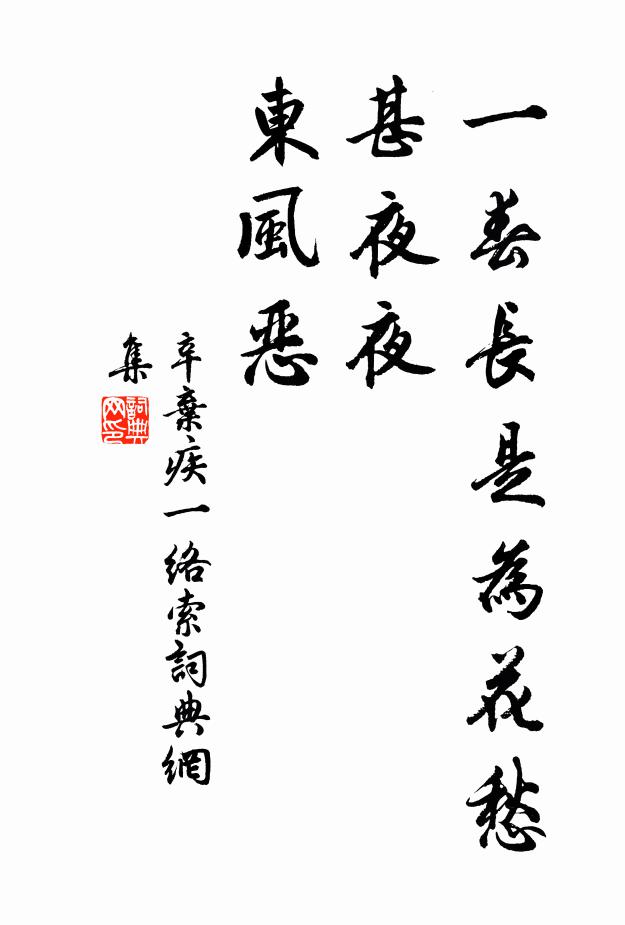 一春長是為花愁
甚夜夜
東風惡
辛棄疾一絡索詞典網
集
詞典
网印